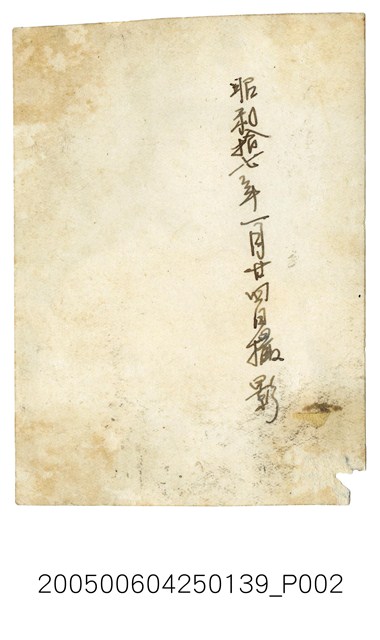 昭和拾七年一月廿四日撮影
200500604250139_P002